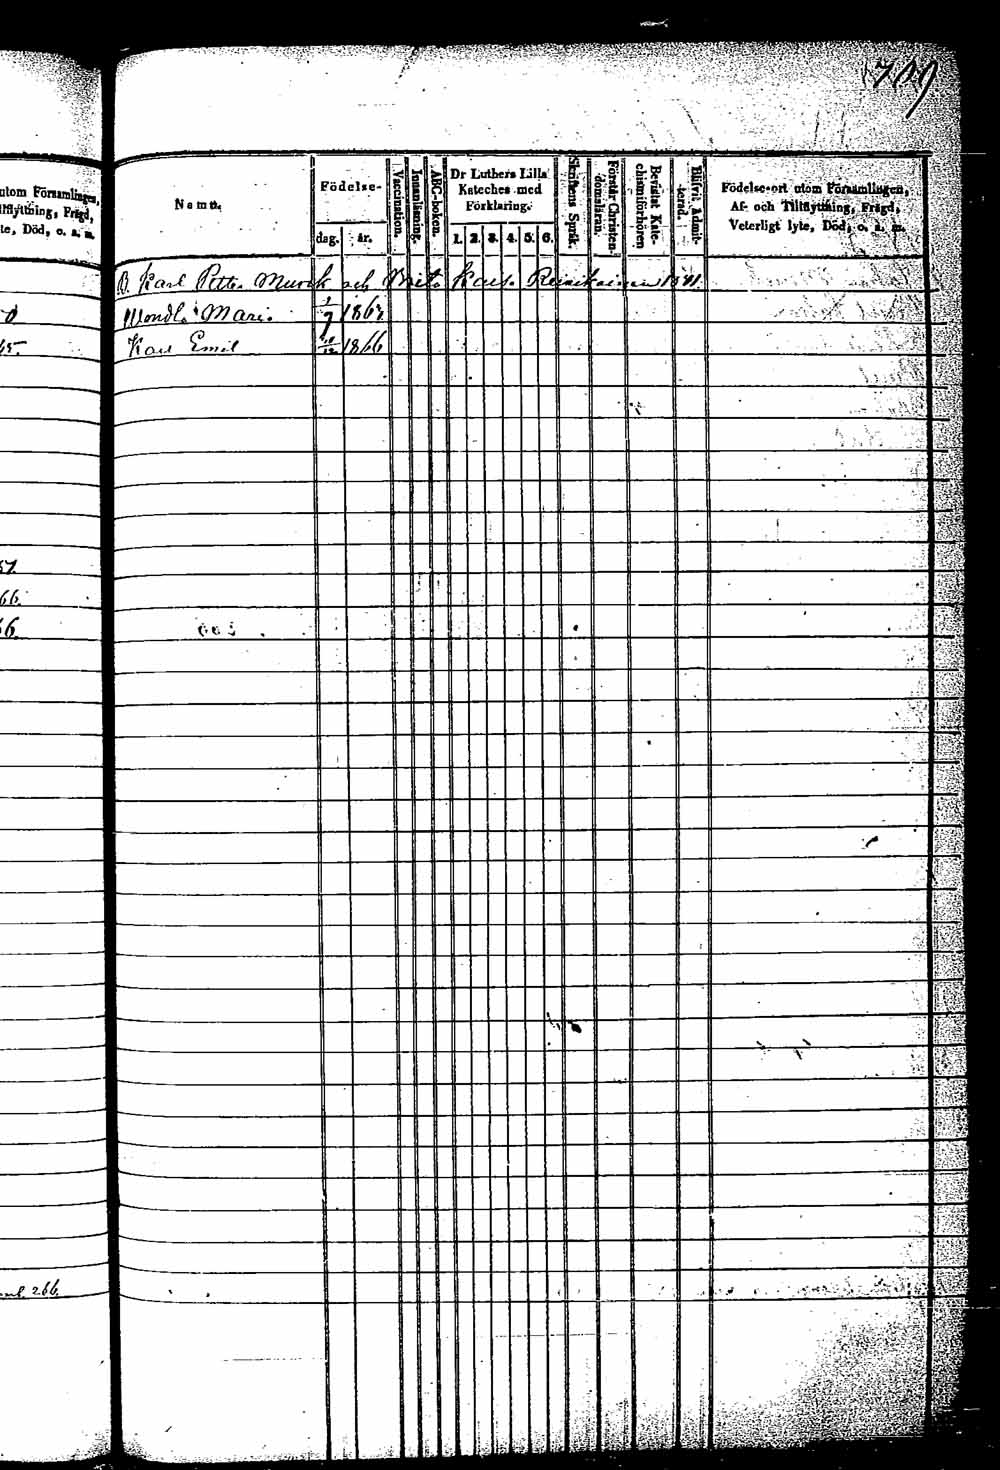 709
utom Församlingen,
Tillflyttning, Frägd,
lyte, Död, o. s. m.
Namn.
Födelse-
dag. år.
Vaccination.
Innanläsning.
ABC-boken.
Dr Luthers Lilla
Kateches med
Förklaring.
1. 2. 3. 4. 5. 6.
Skriftens Språk.
Förstår Christen-
domsläran.
Bevistat Kate-
chismiförhören
Blifvit Admit-
terad.
Födelse-ort utom Församlingen,
Af- och Tillflyttning, Frägd,
Veterligt lyte, Död, o. s. m.
B. Karl Petter och
Mari. 1/7
Karl Emil 1866
57.
66.
66.
266.